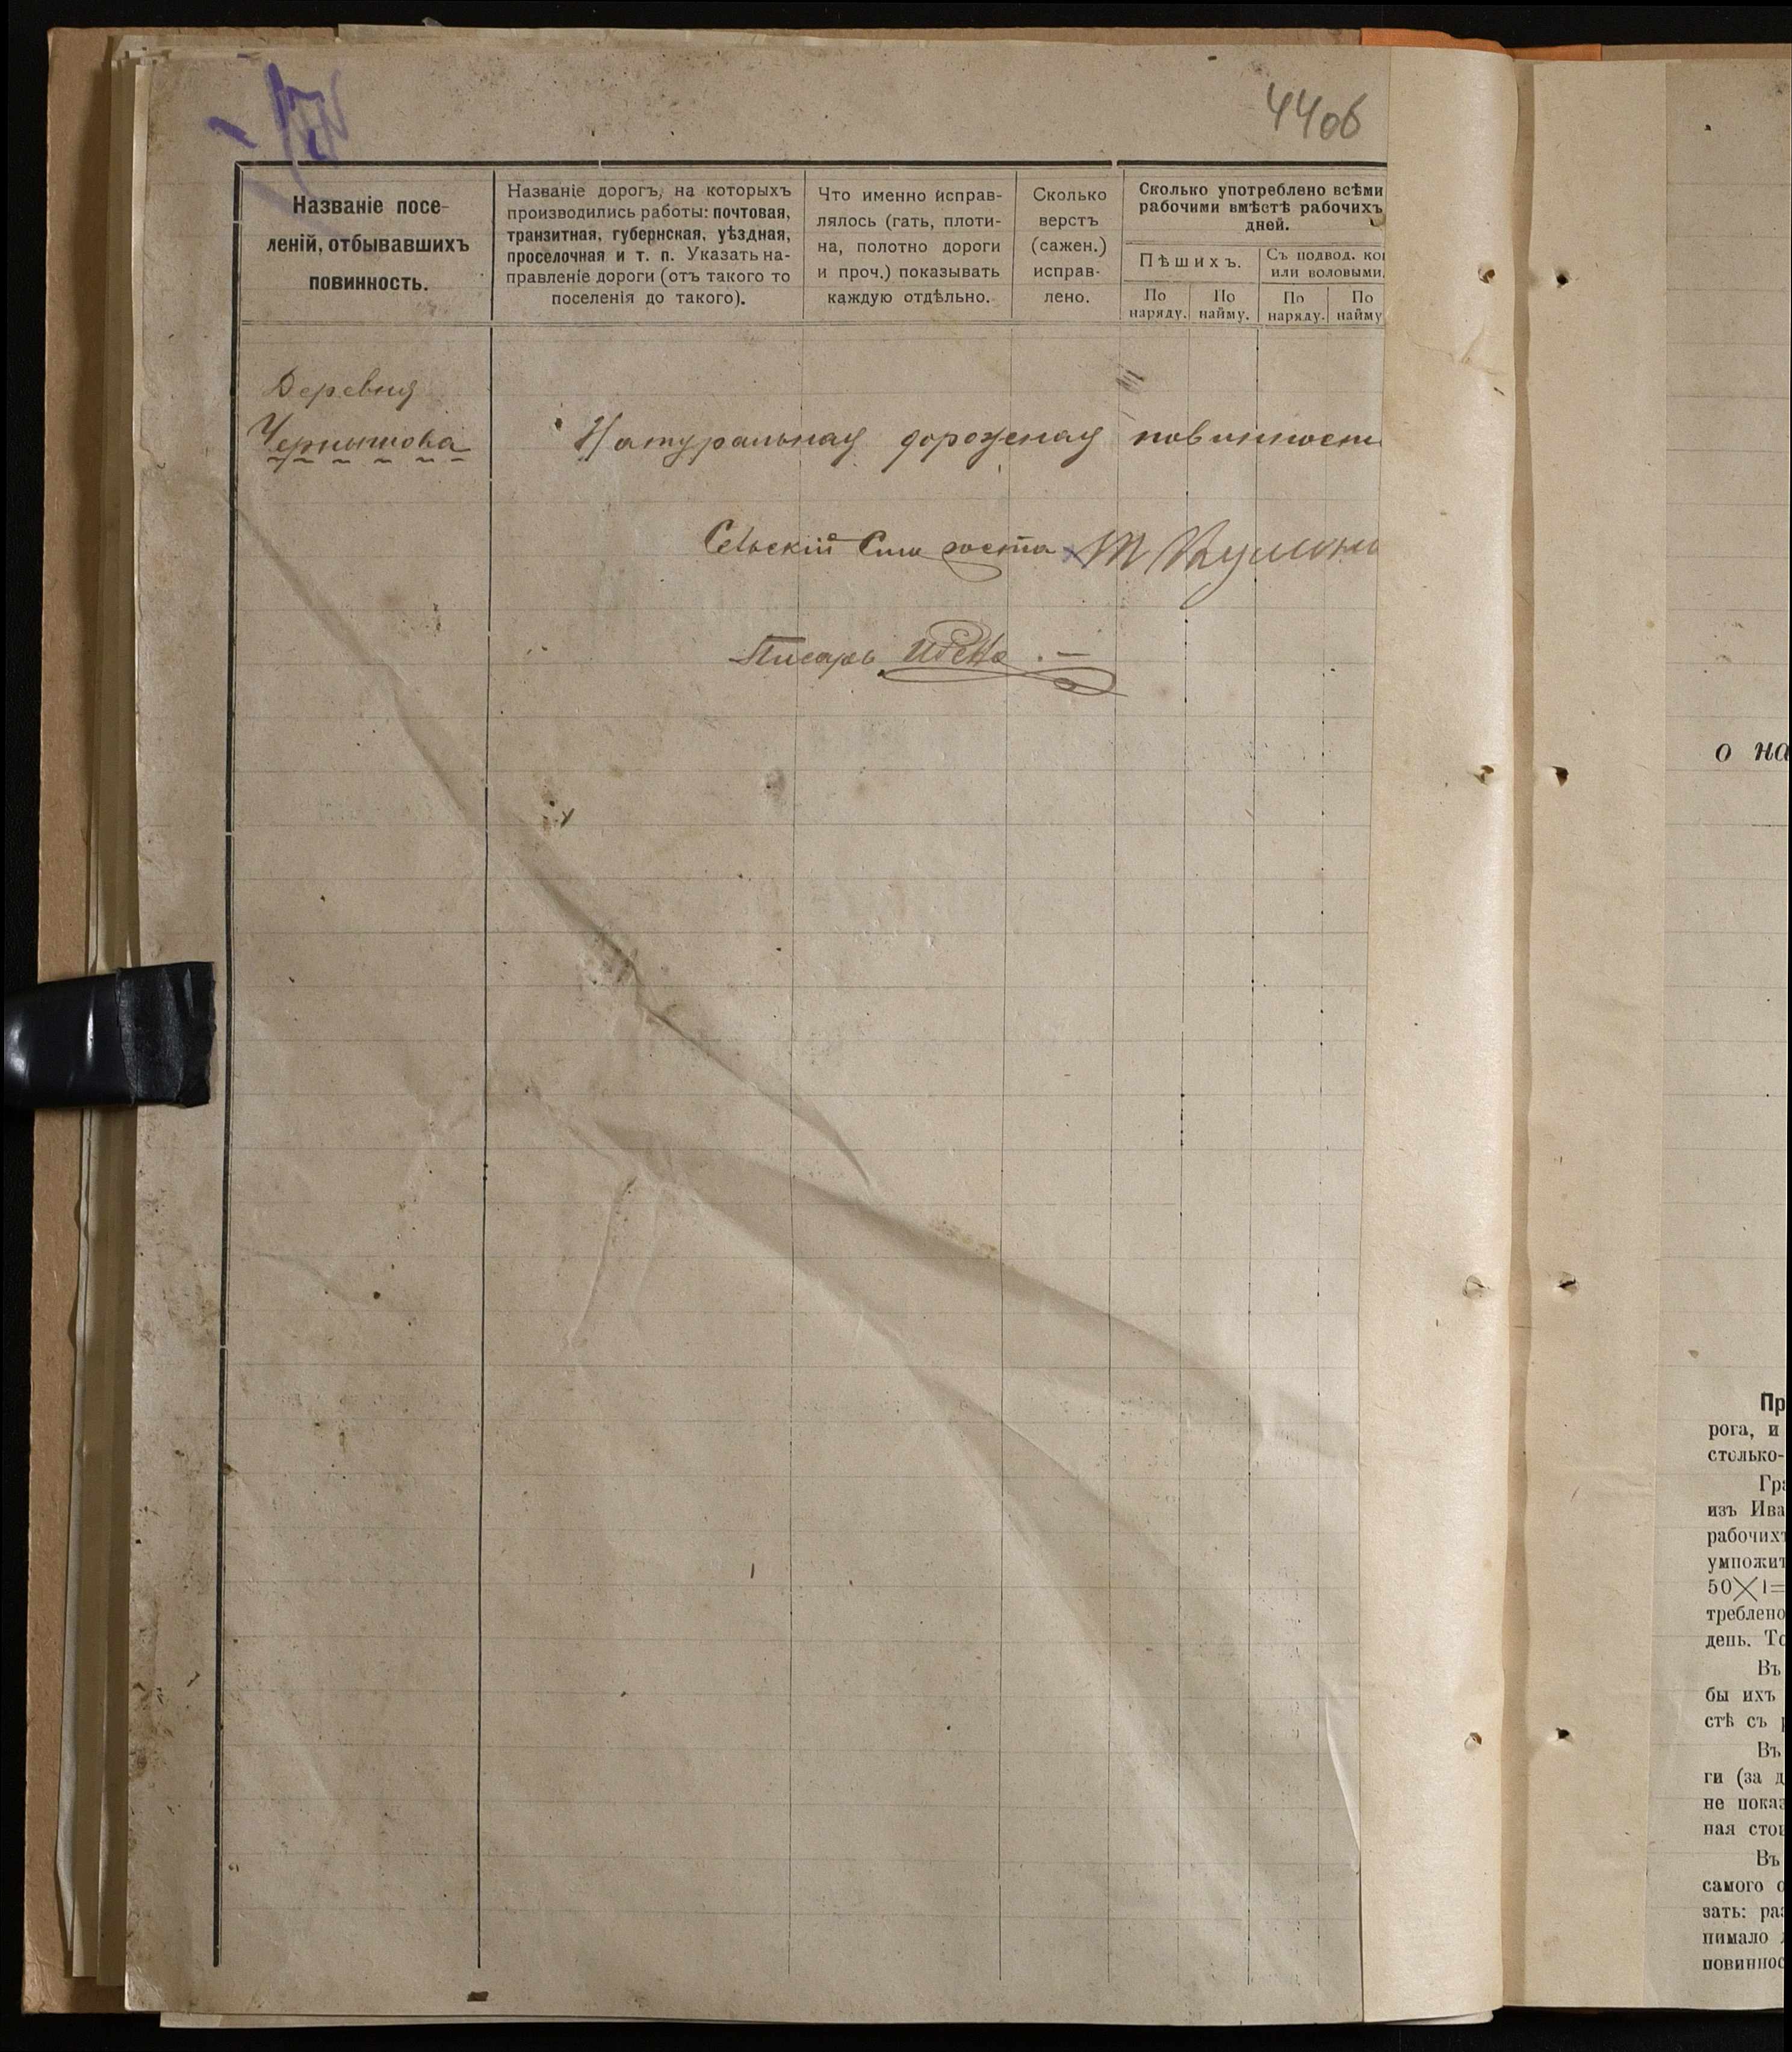 44об
Названіе посе-
леній, отбывавшихъ
повинность.
Названіе дорогъ, на которыхъ
производились работы: почтовая,
транзитная, губернская, уѣздная,
проселочная и т. п. Указать на-
правленіе дороги (отъ такого то
поселенія до такого).
Что именно исправ-
лялось (гать, плоти-
на, полотно дороги
и проч.) показывать
каждую отдѣльно.
Сколько
верстъ
(сажен.)
исправ-
лено.
Сколько употреблено всѣми
рабочими вмѣстѣ рабочихъ
дней.
Пѣшихъ.
Съ подвод. ко
или воловыми.
По
наряду.
По
найму.
По
наряду.
По
найму
Деревня
Чернышова
Натуральная дорожная повинност
Сельскій Староста
Писарь
о на
Пр
рога, и
столько-
Гра
изъ Ива
рабочихъ
умножит
50×1=
треблено
день. То
Въ
бы ихъ
стѣ съ р
Въ
ги (за д
не показ
ная стои
Въ
самого о
зать: раз
нимало
повиннос